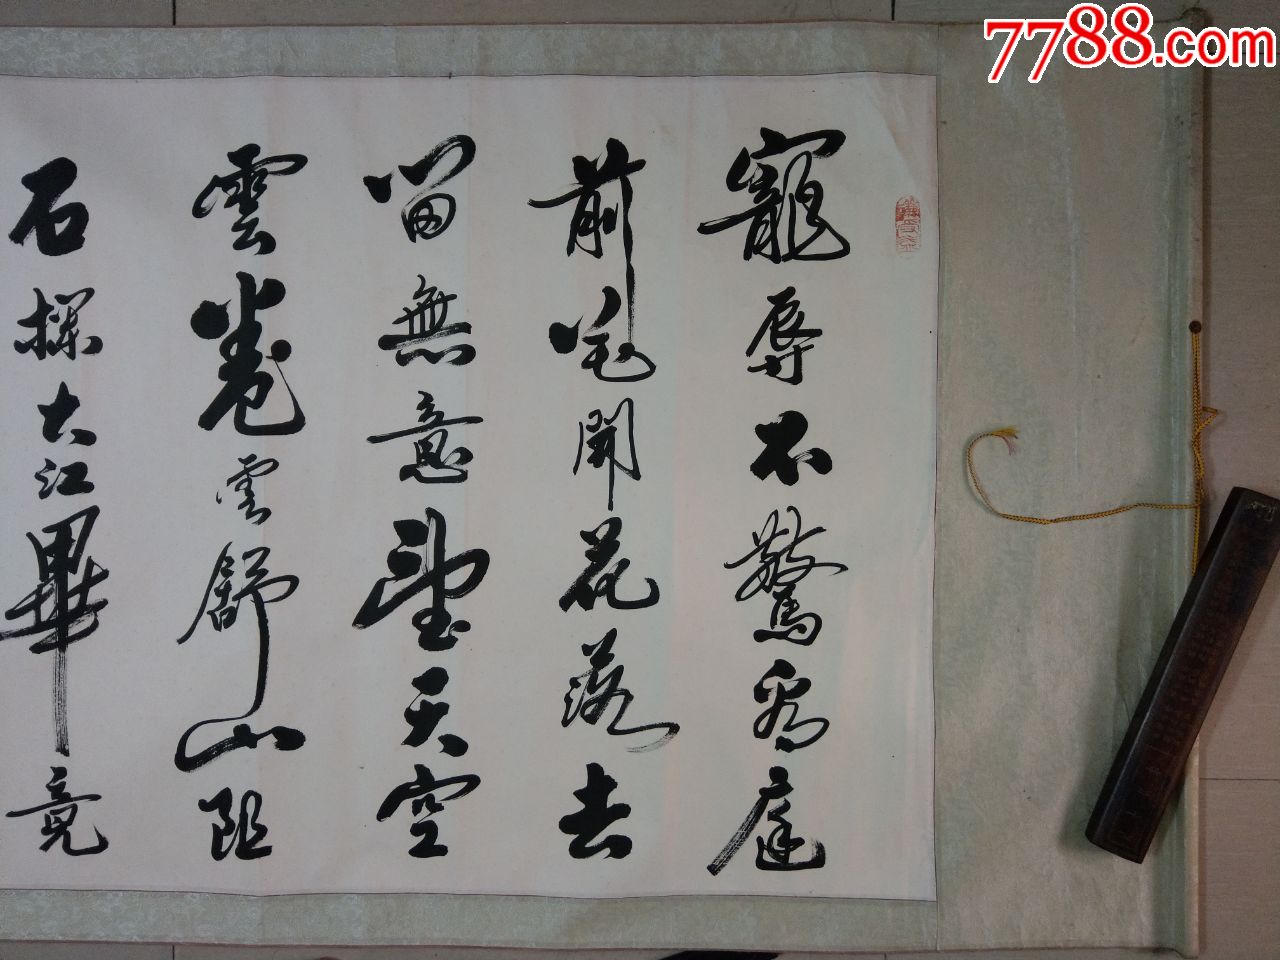 7788.com
寵辱不驚看庭
前花開花落去
留無意望天空
雲卷雲舒山阻
石攔大江畢竟